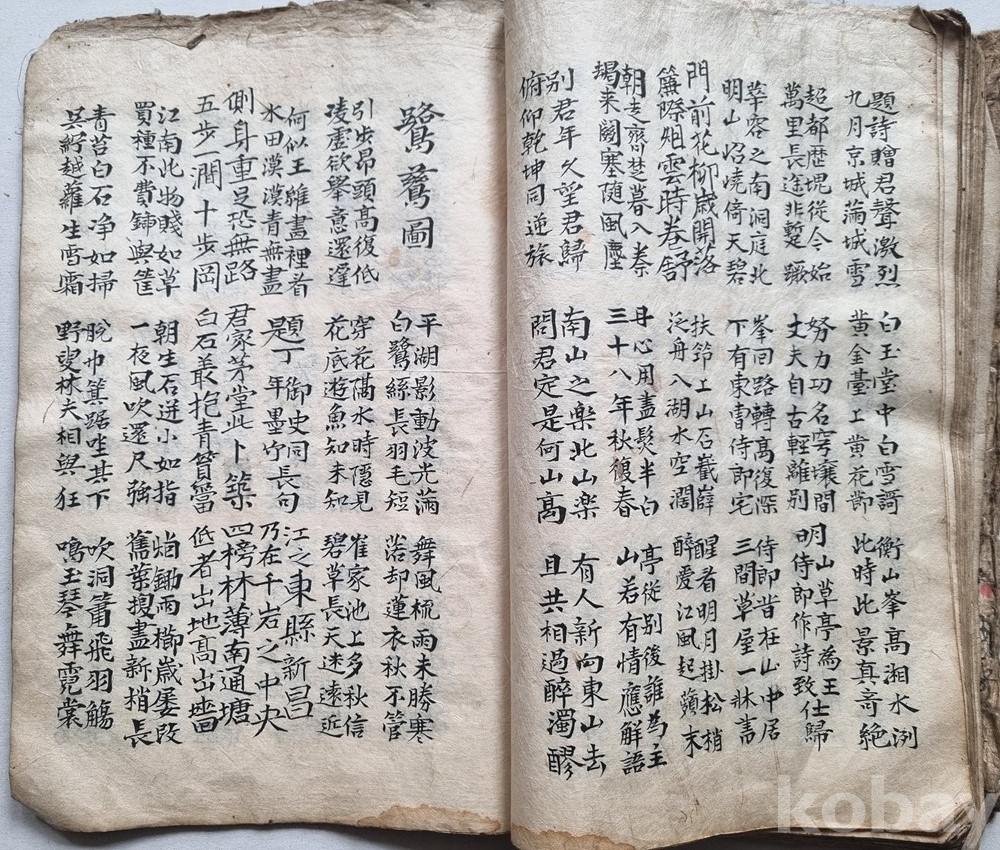 題詩贈君聲激烈
九月京城滿城雪
白玉堂中白雪謌
黄金臺上黄花節
衡山峯高湘水洌
此時此景真奇絶
超都歷塊從今始
萬里長途非蹔蹶
努力功名穹壤間
丈夫自古輕離別
明山草亭為王
侍郎作詩致仕歸
華容之南洞庭北
明山岧嶢倚天碧
峯回路轉高復深
下有東曹侍郎宅
侍郎昔在山中居
三間草屋一牀書
門前花柳歲開落
簾際烟雲時卷舒
扶筇上山石巀嶭
泛舟入湖水空濶
醒看明月掛松梢
醉愛江風起蘋末
朝走齊楚暮入秦
朅来關塞随風塵
丹心用盡髮半白
三十八年秋復春
亭從別後誰為主
山若有情應解語
別君年久望君歸
俯仰乾坤同逆旅
南山之楽北山楽
問君定是何山髙
有人新向東山去
且共相過醉濁醪
鷺鷥圖
平湖影動波光滿
白鷺絲長羽毛短
舞風梳雨未勝寒
落却蓮衣秋不管
引步昂頭高復低
凌虛欲擧意還遲
穿花隔水時隱見
花底遊魚知未知
崔家池上多秋信
碧草長天迷遠近
何似王維畫裡看
水田漠漠青無盡
題丁御史同年墨竹長句
江之東縣新昌
乃在千岩之中央
側身重足恐無路
五步一澗十步岡
君家茅堂此卜築
白石叢抱青篔簹
四榜林薄南通塘
低者出地髙出墻
江南此物賤如草
買種不費鍤與筐
朝生石迸小如指
一夜風吹還尺強
烟鋤雨櫛歲屡改
舊葉摉盡新梢長
青苔白石净如掃
吳紵越蘿生雪霜
脫巾箕踞坐其下
野叟林夫相與狂
吹洞簫飛羽觴
鳴玉琴舞霓裳
kobay